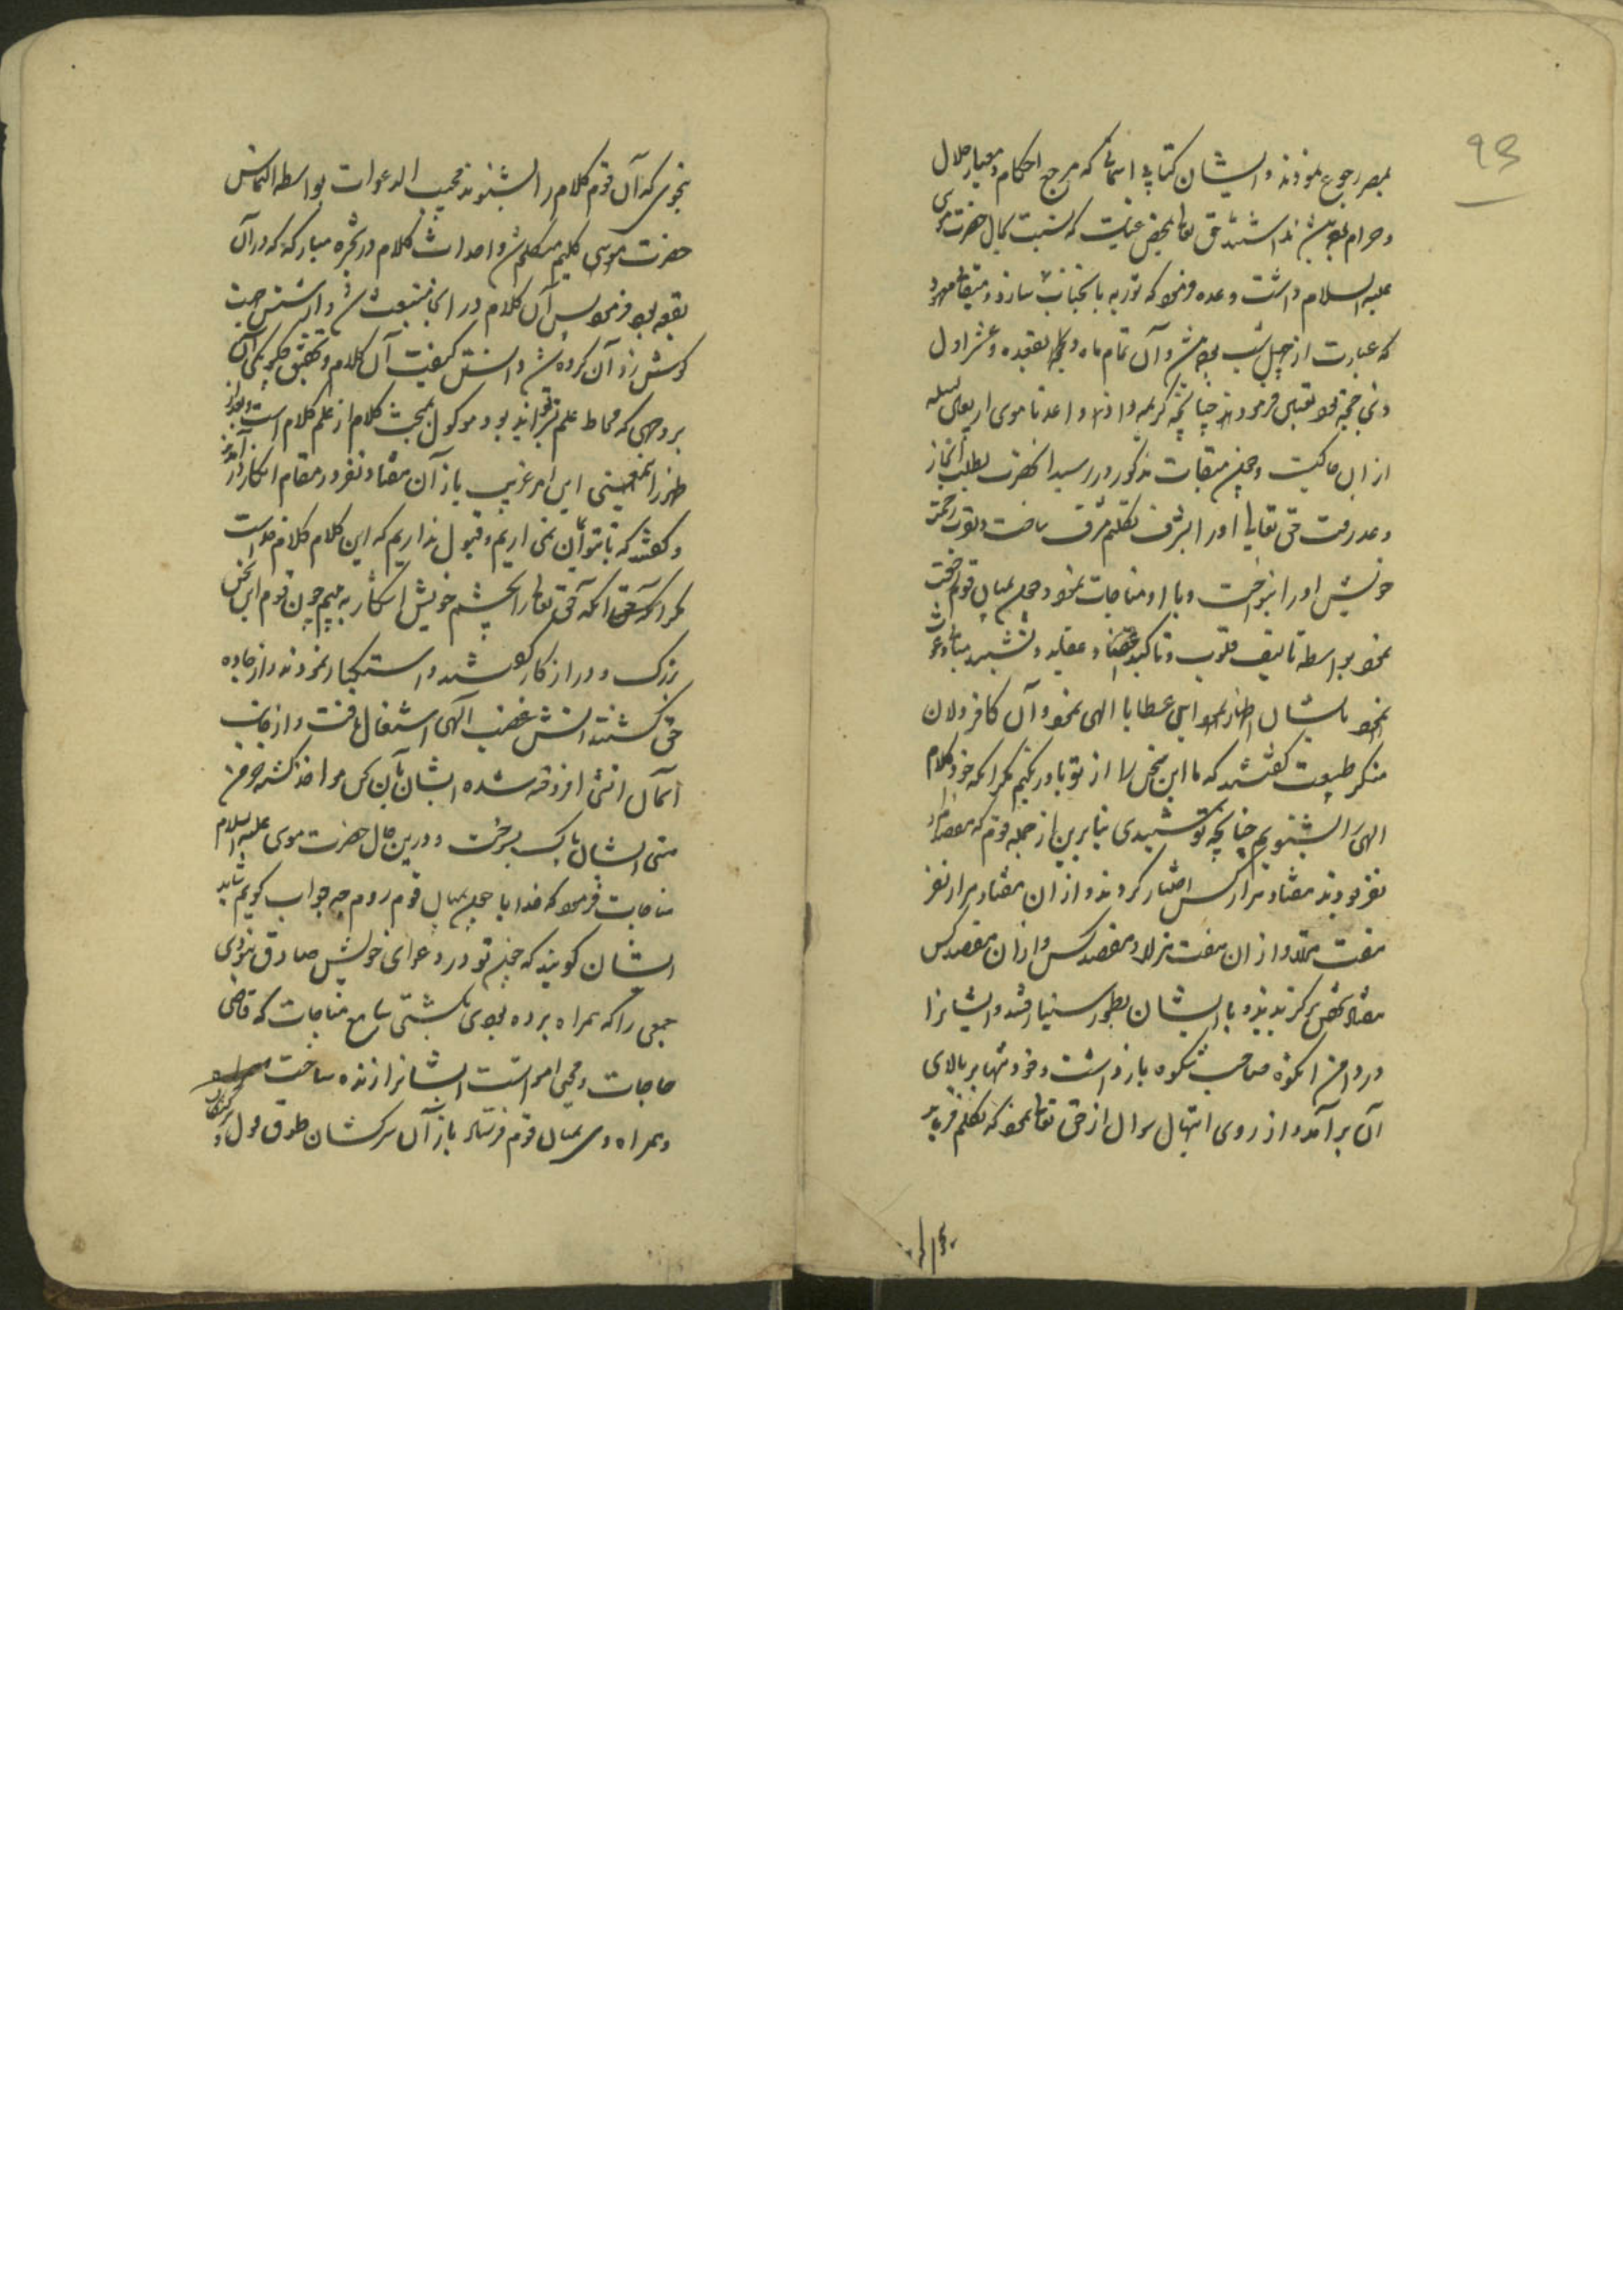 93
بمصر رجوع نمودند و ایشان کتابی آسمانی که مرجع احکام و معیار حلال
و حرام بود نداشتند حق تعالی بمحض عنایت که نسبت بحال حضرت موسی
علیه السلام داشت وعده فرمود که توریه بآنجناب نازل سازد و میقات معهود
که عبارت از چهل شب بود و آن تمام ماه ذیقعده و عشر اول
ذی حجه بود تعیین فرمودند چنانچه کریمه و اذ واعدنا موسی اربعین لیله
از آن حاکیست و چون میقات مذکور در رسید آنحضرت بطلب انجاز
وعد رفت حق تعالی او را بشرف تکلم مشرف ساخت و بقرب رحمت
خویش او را بنواخت و با او مناجات نمود و چون بمیان قوم
نمود بواسطه تالیف قلوب و تاکید عقاید و تشیید مبانی
بایشان اظهار این عطایا الهی نمود و آن کافردلان
منکر طبیعت گفتند که ما این سخن را از تو باور نکنیم مگر آنکه خود کلام
الهی را بشنویم چنانچه تو شنیدی بنابرین از جمله قوم که هفصد هزار
نفر بودند هفتاد هزار کس اختیار کردند و از آن هفتاد هزار نفر
هفت هزار و از آن هفت هزار هفصد کس و از آن هفصد کس
هفتاد شخص برگزیدند و با ایشان بطور سینا رفتند و ایشانرا
در دامن آنکوه صاحب شکوه بازداشت و خود تنها بر بالای
آن برآمد و از روی ابتهال سوال از حق تعالی نمود که تکلم فرماید
بنحوی که آن قوم کلام را بشنوند مجیب الدعوات بواسطه التماس
حضرت موسی کلیم متکلم شد و احداث کلام در شجره مبارکه که در آن
بقعه بود فرمود پس آن کلام در آنجا منبعث شد و از شش جهت
گوش زد آن گروه شد و دانستن کیفیت آن کلام و تحقیق چگونگی آن
بر وجهی که محاط علم تواند بود موکول بمبحث کلام از علم کلام است و بعد از
ظهور این امر غریب باز آن هفتاد نفر در مقام انکار در آمدند
و گفتند که ما بتو ایمان نمی آریم و قبول نداریم که این کلام کلام خداست
مگر آنکه حق تعالی را بچشم خویش آشکار به بینیم چون قوم این سخن
بزرگ و دور از کار گفتند و استکبار نمودند و از جاده
حق گشتند آتش غضب الهی اشتعال یافت و از جانب
آسمان آتشی افروخته شده ایشان بآن کس مواخذ گشته خرمن
هستی ایشان پاک بسوخت و درین حال حضرت موسی علیه السلام
مناجات فرمود که خدایا چون بمیان قوم روم چه جواب گویم شاید
ایشان گویند که چون تو در دعوای خویش صادق نبودی
جمعی را که همراه برده بودی بکشتی سامع مناجات که قاضی
حاجات و محیی اموات است ایشانرا زنده ساخت
و همراه وی بمیان قوم فرستاد باز آن سرکشان طوق